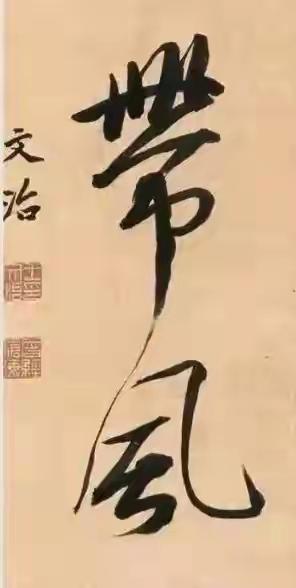 帶風
文治